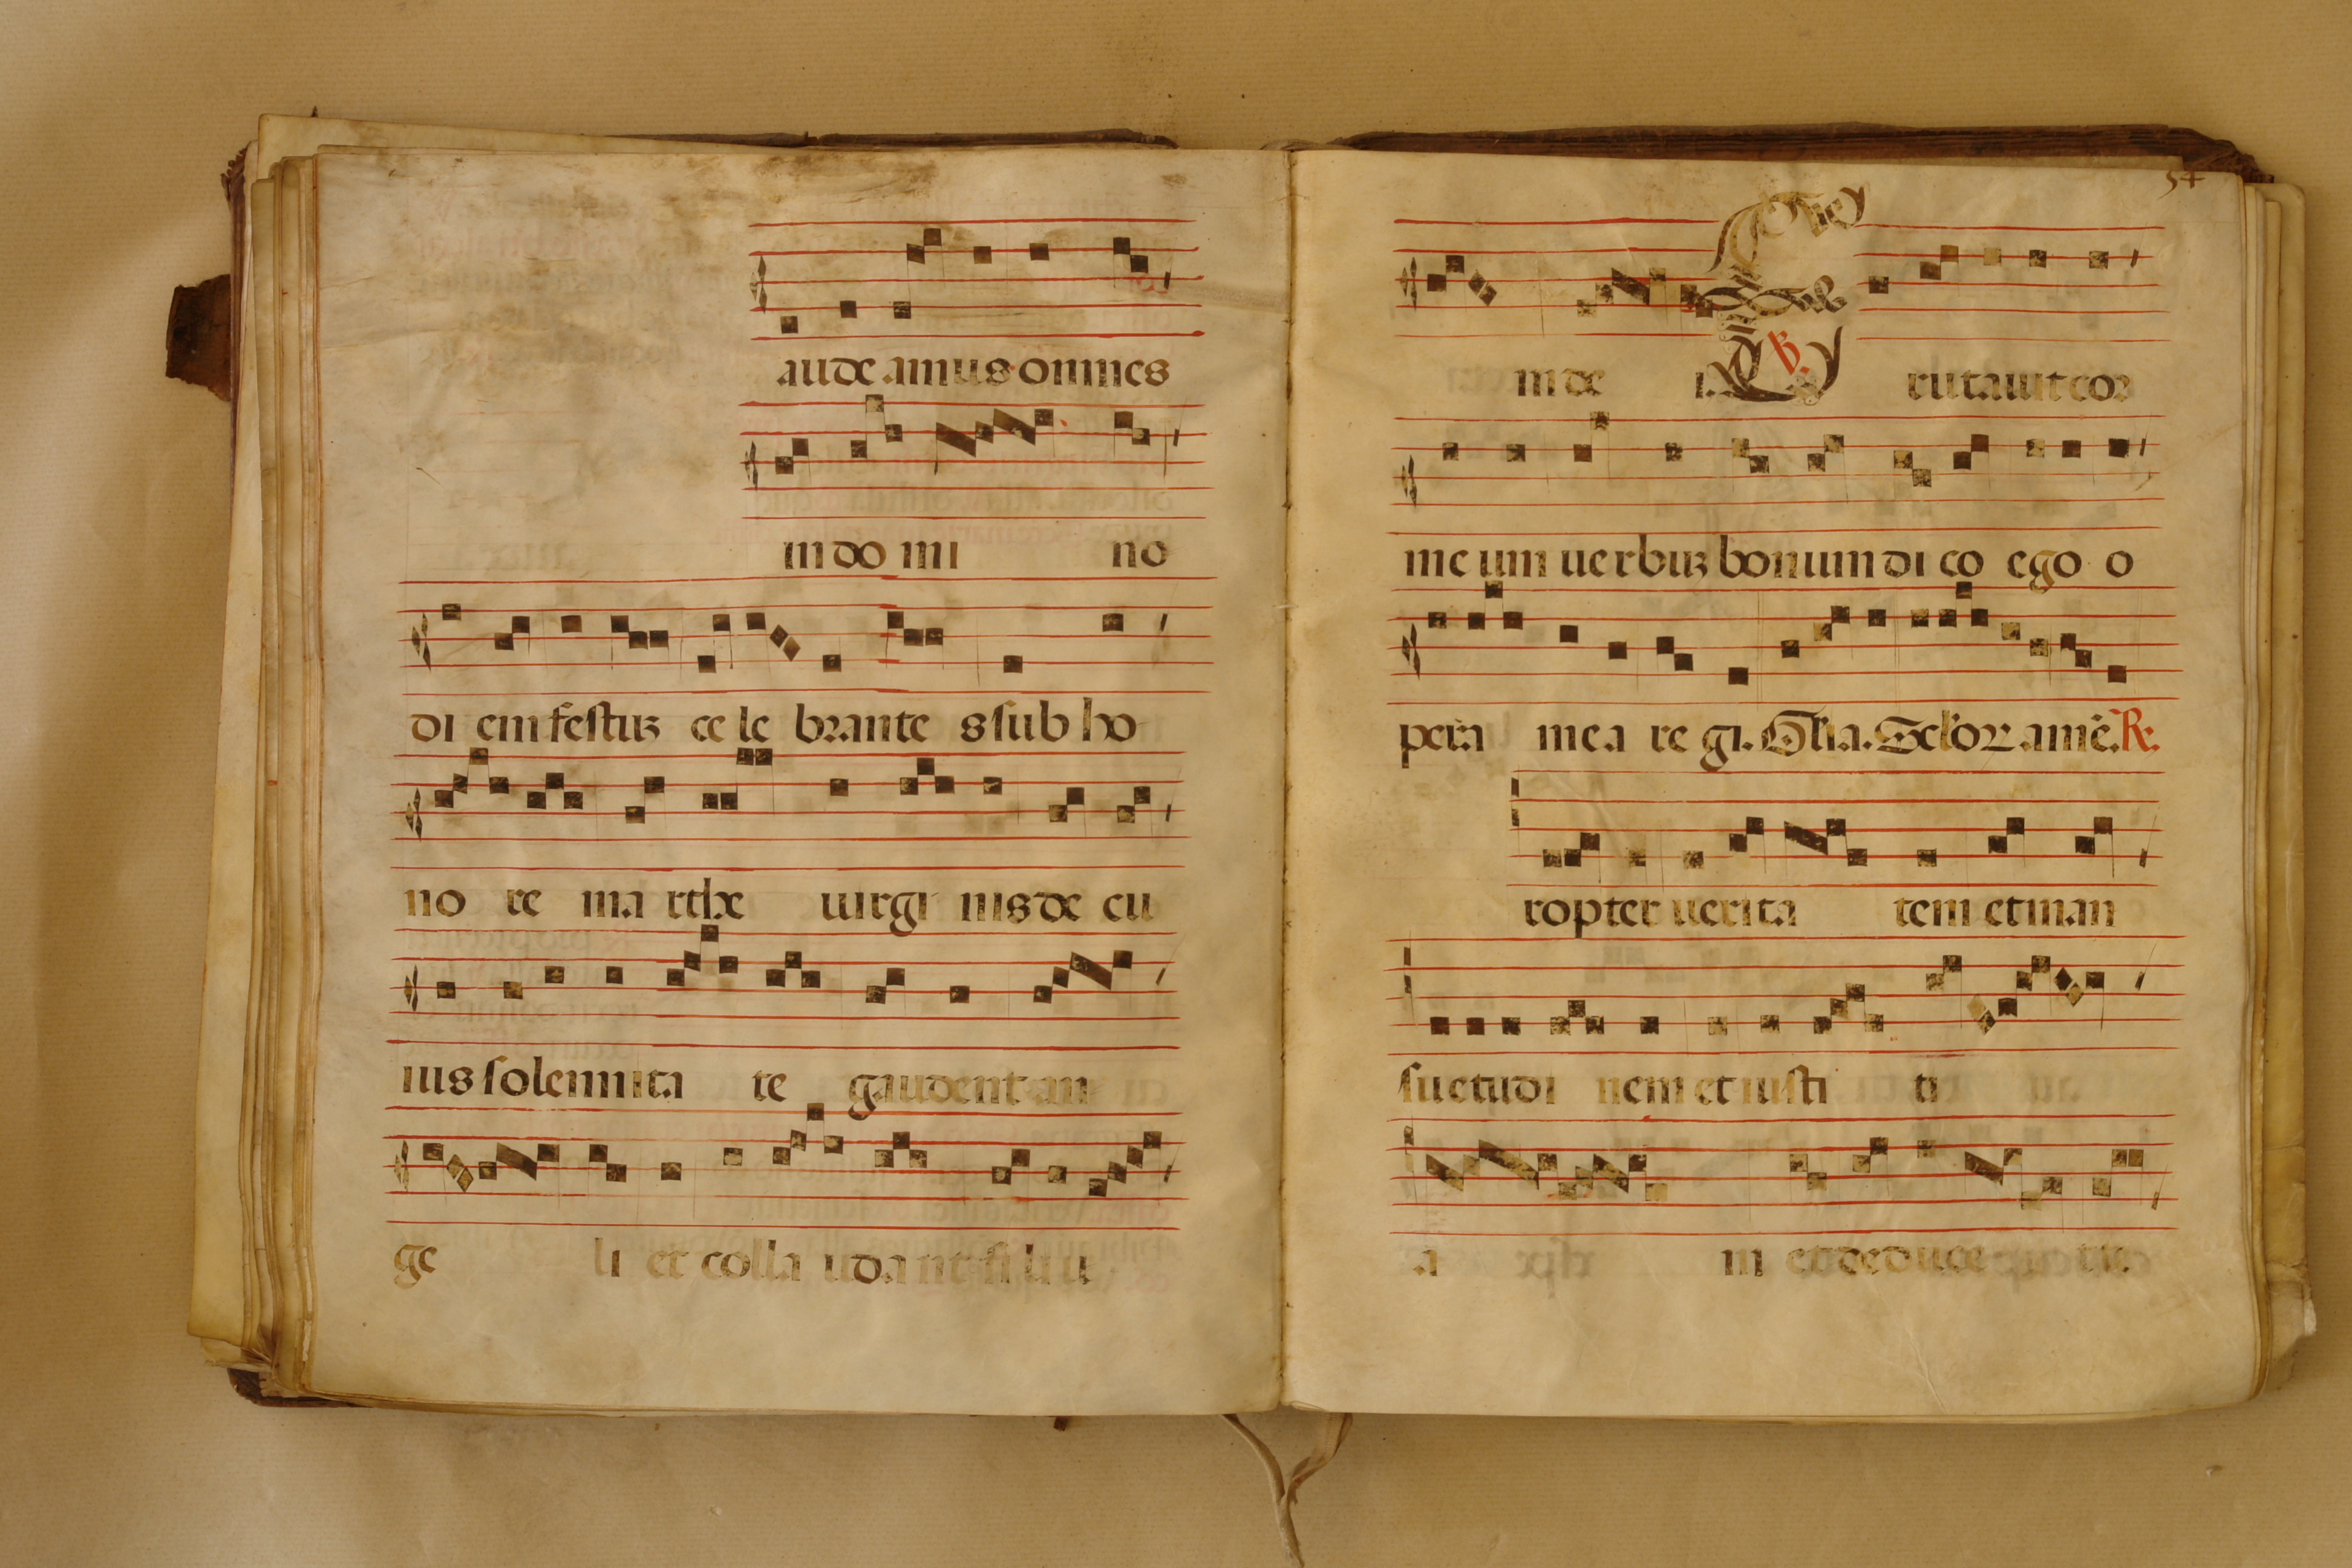 aude amus omnes
in do mi no
di em festuȝ ce le brante s sub ho
no re ma rthe uirgi nis de cu
ius solennita te gaudent an
ge li et colla uda nt fi li u
54
m de i. ℣. ructauit cor
me um uerbuȝ bonum di co ego o
pera mea re gi. Gl̃ia. Sc̃loꝝ amẽ. ℟.
ropter uerita tem et man
suetudi nem et iusti ti
a m et deduce t te